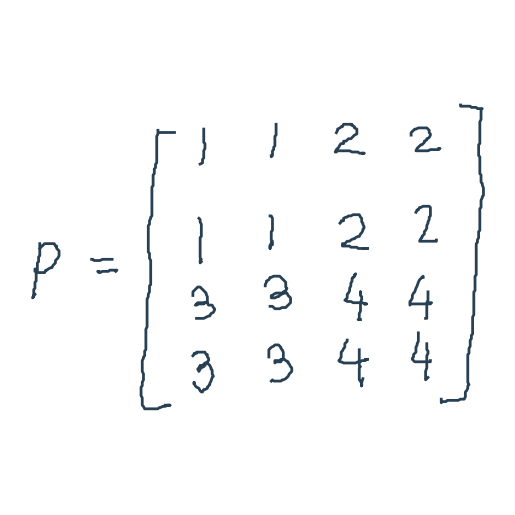 1 1 2 2
P = 1 1 2 2
3 3 4 4
3 3 4 4